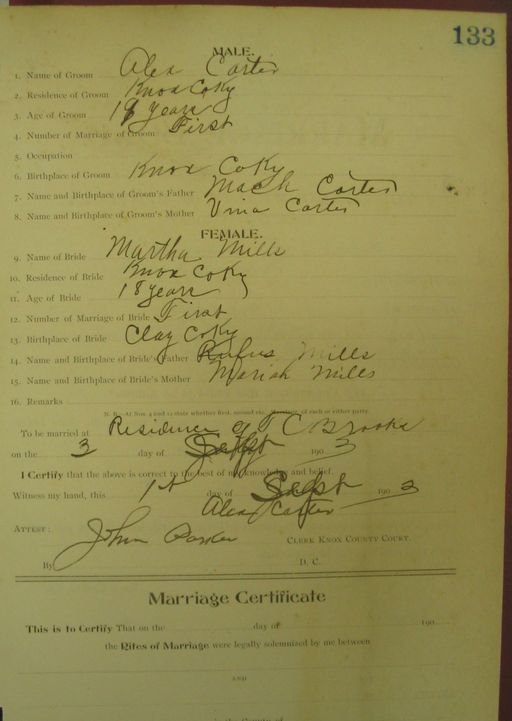 133
MALE.
1. Name of Groom Alex Carter
2. Residence of Groom Knox Co Ky
3. Age of Groom 18 years
4. Number of Marriage of Groom First
5. Occupation
6. Birthplace of Groom Knox Co Ky
7. Name and Birthplace of Groom's Father Mack Carter
8. Name and Birthplace of Groom's Mother Vina Carter
FEMALE.
9. Name of Bride Martha Mills
10. Residence of Bride Knox Co Ky
11. Age of Bride 18 years
12. Number of Marriage of Bride First
13. Birthplace of Bride Clay Co Ky
14. Name and Birthplace of Bride's Father Rufus Mills
15. Name and Birthplace of Bride's Mother Mariah Mills
16. Remarks
N. B.—At Nos. 4 and 12 state whether first, second etc. Marriage of each or either party.
To be married at Residence of T C Brooks
on the 3 day of Sept 1903
I Certify that the above is correct to the best of my knowledge and belief.
Witness my hand, this 1st day of Sept 1903
Alex Carter
ATTEST:
John Parker CLERK KNOX COUNTY COURT.
By D. C.
Marriage Certificate
This is to Certify That on the day of 190
the Rites of Marriage were legally solemnized by me between
AND
in the